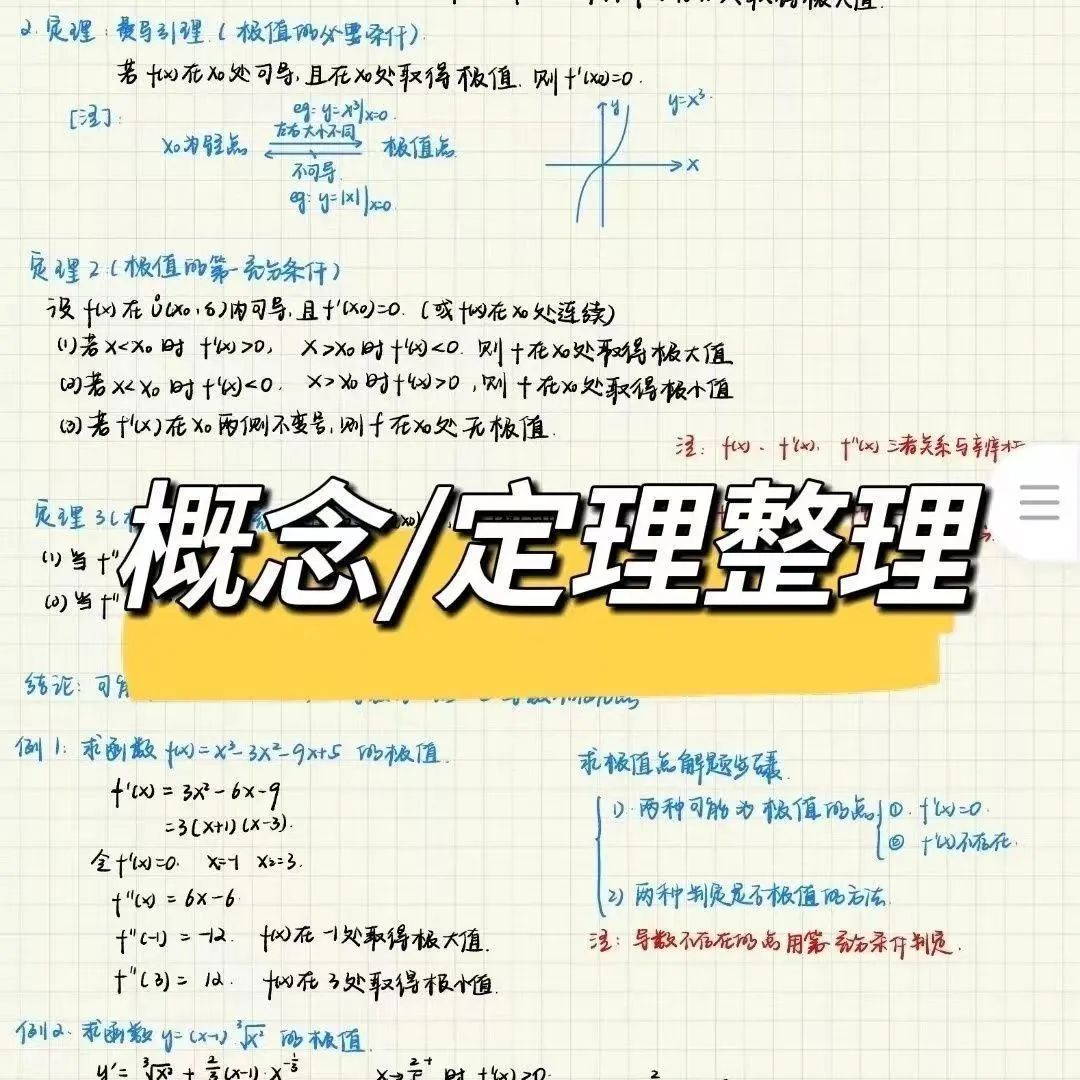 2. 定理: 费马引理.(极值的必要条件)
若 f(x) 在 x₀ 处可导, 且在 x₀ 处取得极值. 则 f'(x₀)=0.
[注]:
eg: y=x³|x=0.
左右大小不同
x₀为驻点 极值点
不可导.
eg: y=|x||x=0.
y
y=x³.
x
定理2.(极值的第一充分条件)
设 f(x) 在 Ů(x₀,δ)内可导, 且 f'(x₀)=0. (或 f(x)在 x₀ 处连续)
(1)若 x<x₀ 时 f'(x)>0, x>x₀ 时 f'(x)<0. 则 f 在 x₀处取得极大值
(2)若 x<x₀ 时 f'(x)<0, x>x₀ 时 f'(x)>0, 则 f 在 x₀ 处取得极小值
(3)若 f'(x) 在 x₀ 两侧不变号, 则 f 在 x₀处 无极值.
注: f(x)、f'(x)、f''(x) 三者关系与
定理3(
概念/定理整理
(1) 当 f''
(2) 当 f''
结论: 可
例1: 求函数 f(x)=x³-3x²-9x+5 的极值.
f'(x) = 3x²-6x-9
=3(x+1)(x-3).
令 f'(x)=0. x=-1 x₂=3.
f''(x) = 6x-6
f''(-1) = -12. f(x)在 -1 处取得极大值.
f''(3) = 12. f(x)在 3 处取得极小值.
求极值点解题步骤.
1) 两种可能为极值的点 ①. f'(x)=0.
② f'(x)不存在.
2) 两种判定是否极值的方法.
注: 导数不存在的点用第一充分条件判定.
例2. 求函数 y=(x-1)∛x² 的极值.
y' = ∛x² + 2/3(x-1)·x^(-1/3)